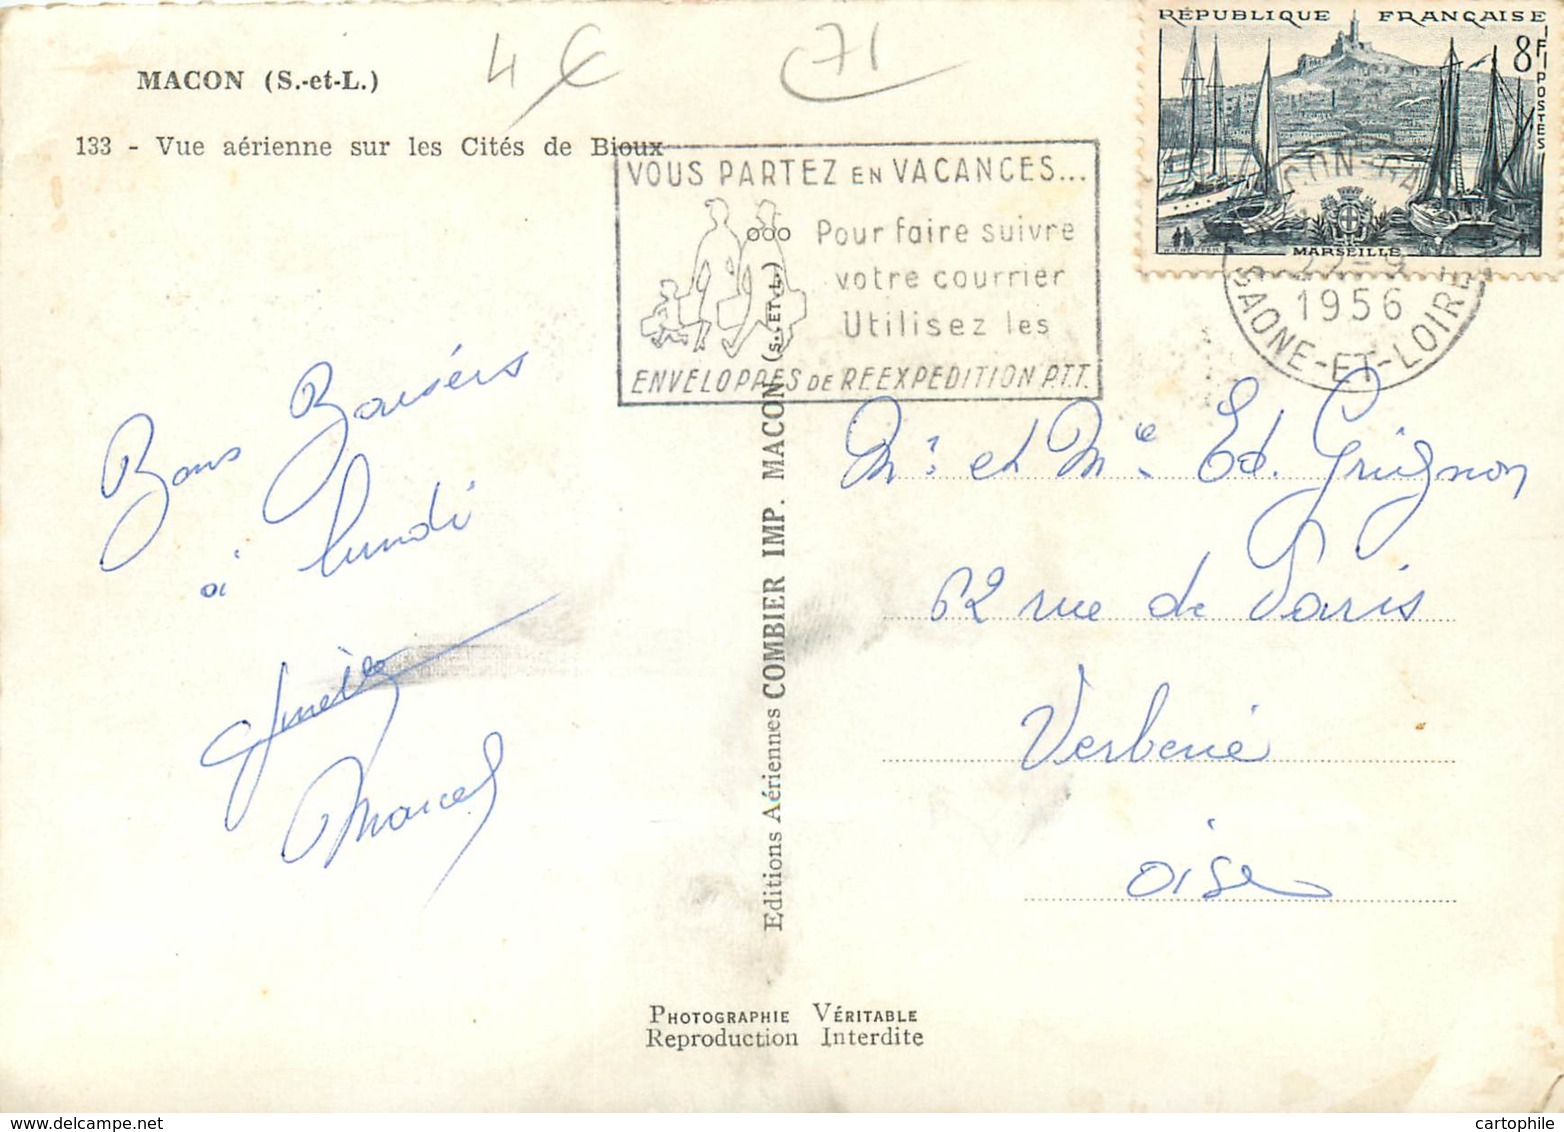 RÉPUBLIQUE FRANÇAISE
8F
POSTES
MARSEILLE
4 €
71
MACON (S.-et-L.)
133 - Vue aérienne sur les Cités de Bioux
VOUS PARTEZ EN VACANCES...
Pour faire suivre
votre courrier
Utilisez les
ENVELOPPES DE REEXPEDITION P.T.T.
1956
SAONE-ET-LOIRE
Bons Baisers
à lundi
Marcel
Mr et Mme Ed. Grignon
62 rue de Paris
Verberie
Oise
Editions Aériennes COMBIER IMP. MACON (S.-ET-L.)
PHOTOGRAPHIE VÉRITABLE
Reproduction Interdite
cartophile